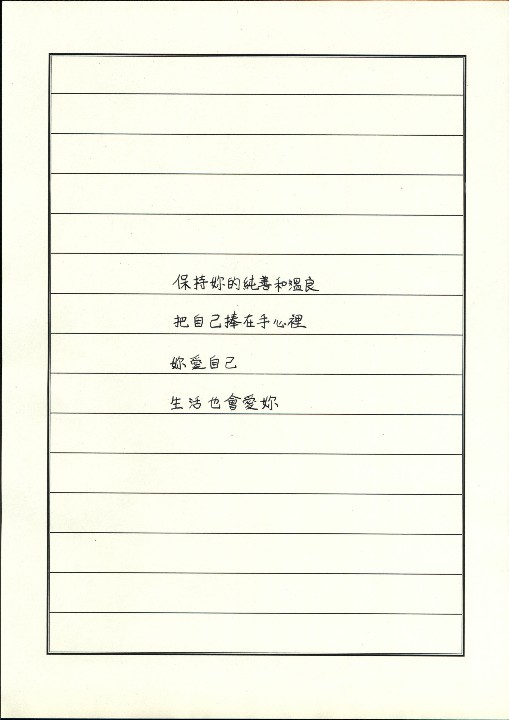 保持妳的純善和溫良
把自己捧在手心裡
妳愛自己
生活也會愛妳